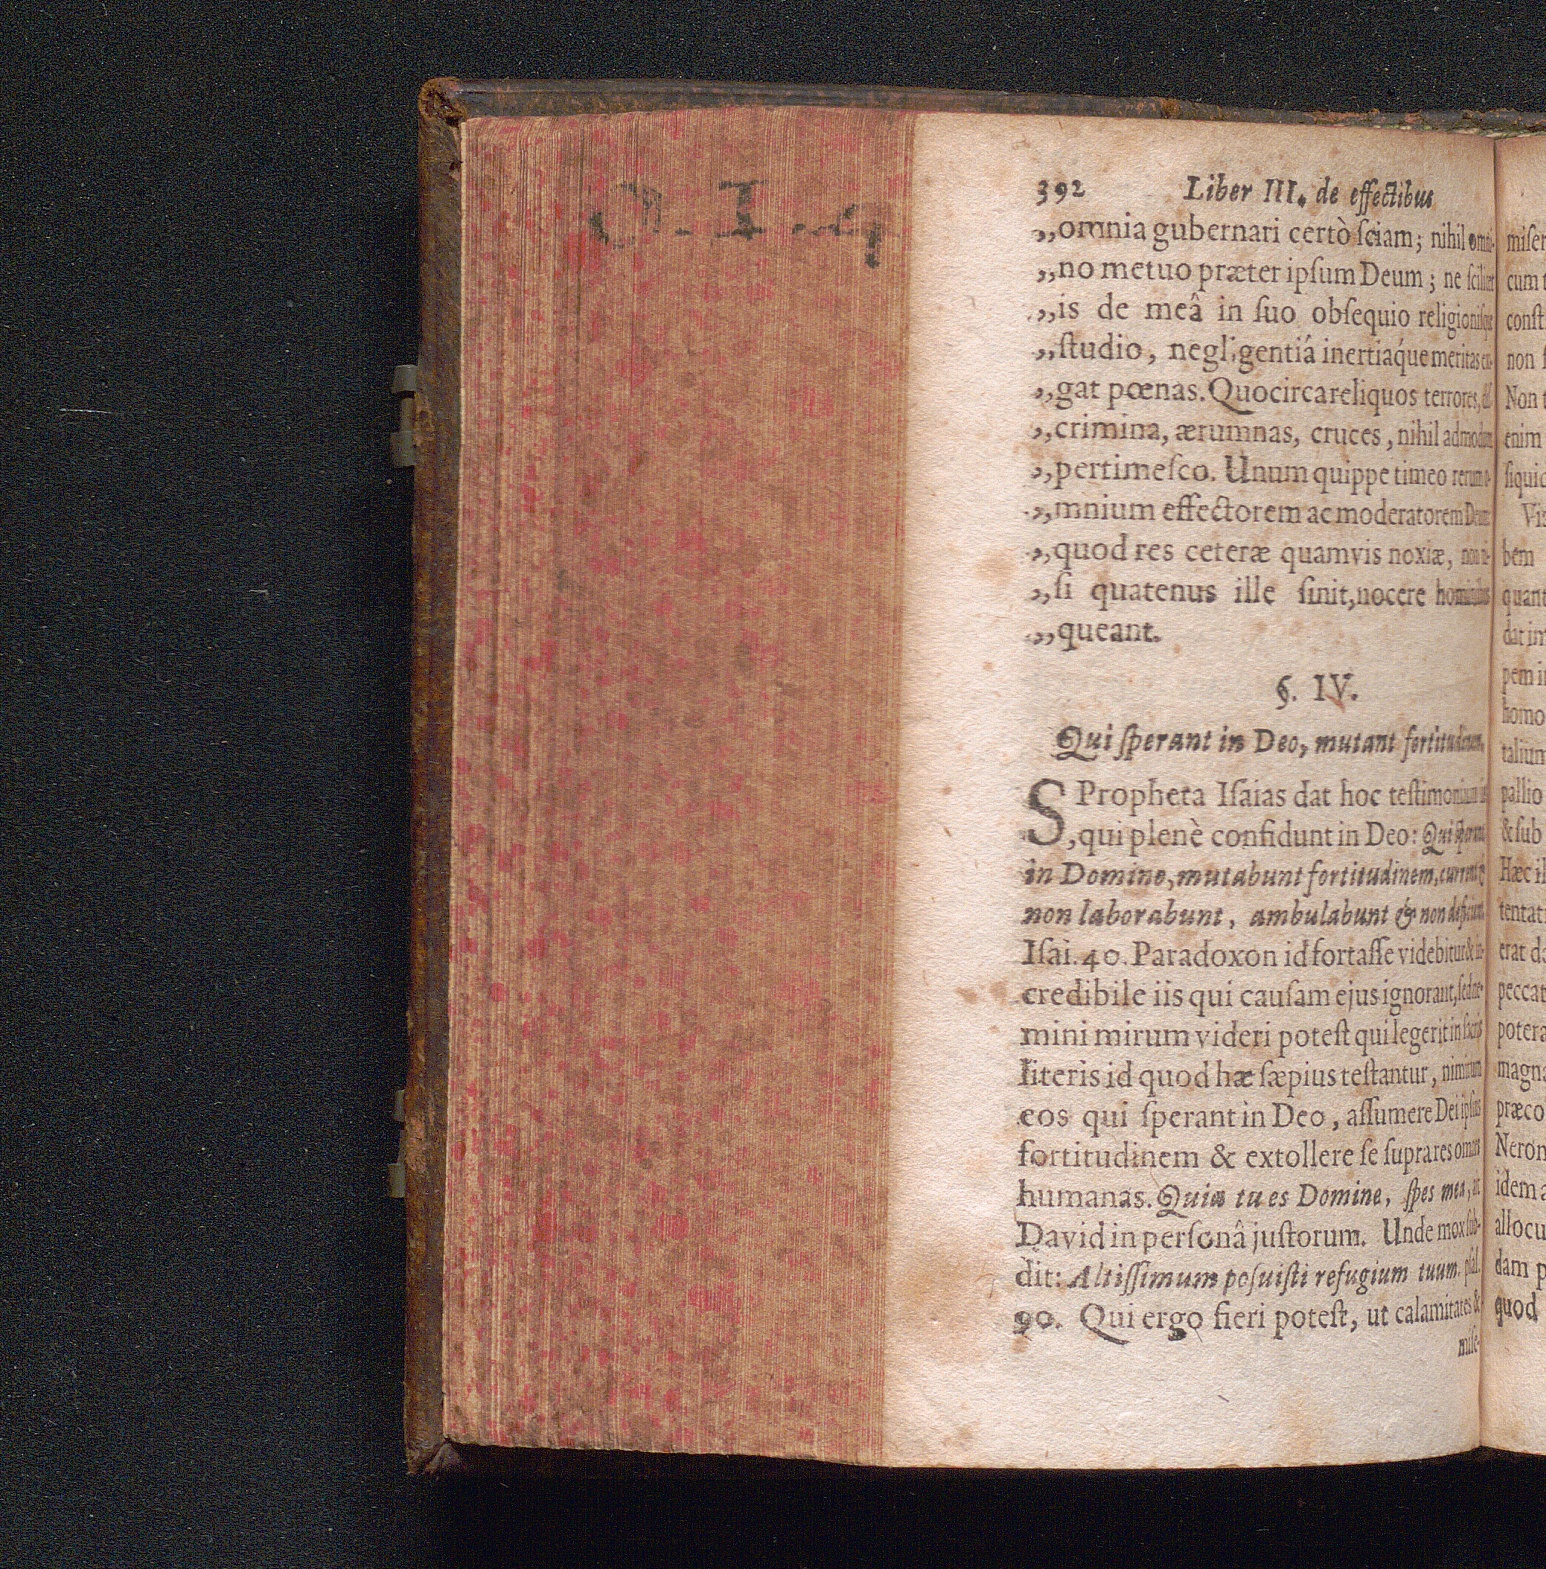 392 Liber III. de effectibus
„omnia gubernari certò ſciam; nihil omni-
„no metuo præter ipſum Deum; ne ſcilicet
„is de meâ in ſuo obſequio religionisque
„ſtudio, negligentiâ inertiáque meritas exi-
„gat pœnas. Quocirca reliquos terrores,
„crimina, ærumnas, cruces, nihil admodum
„pertimeſco. Unum quippe timeo rerum o-
„mnium effectorem ac moderatorem Deum:
„quod res ceteræ quamvis noxiæ, non ni-
„ſi quatenus ille ſinit, nocere hominibus
„queant.
§. IV.
Qui ſperant in Deo, mutant fortitudinem.
S Propheta Iſaias dat hoc teſtimonium
, qui plenè confidunt in Deo: Qui ſperant
in Domino, mutabunt fortitudinem, current &
non laborabunt, ambulabunt & non deficient.
Iſai. 40. Paradoxon id fortaſſe videbitur & in-
credibile iis qui cauſam ejus ignorant, ſed ne-
mini mirum videri poteſt qui legerit in ſacris
literis id quod hæ ſæpius teſtantur, nimirum
eos qui ſperant in Deo, aſſumere Dei ipſius
fortitudinem & extollere ſe ſupra res omnes
humanas. Quia tu es Domine, ſpes mea, ait
David in perſonâ juſtorum. Unde mox ſub-
dit: Altiſſimum poſuiſti refugium tuum. pſal.
90. Qui ergo fieri poteſt, ut calamitates &
miſe-
cum
non
Non
enim
bem
homo
pallio
& ſub
magna
præco
idem
dam
quod